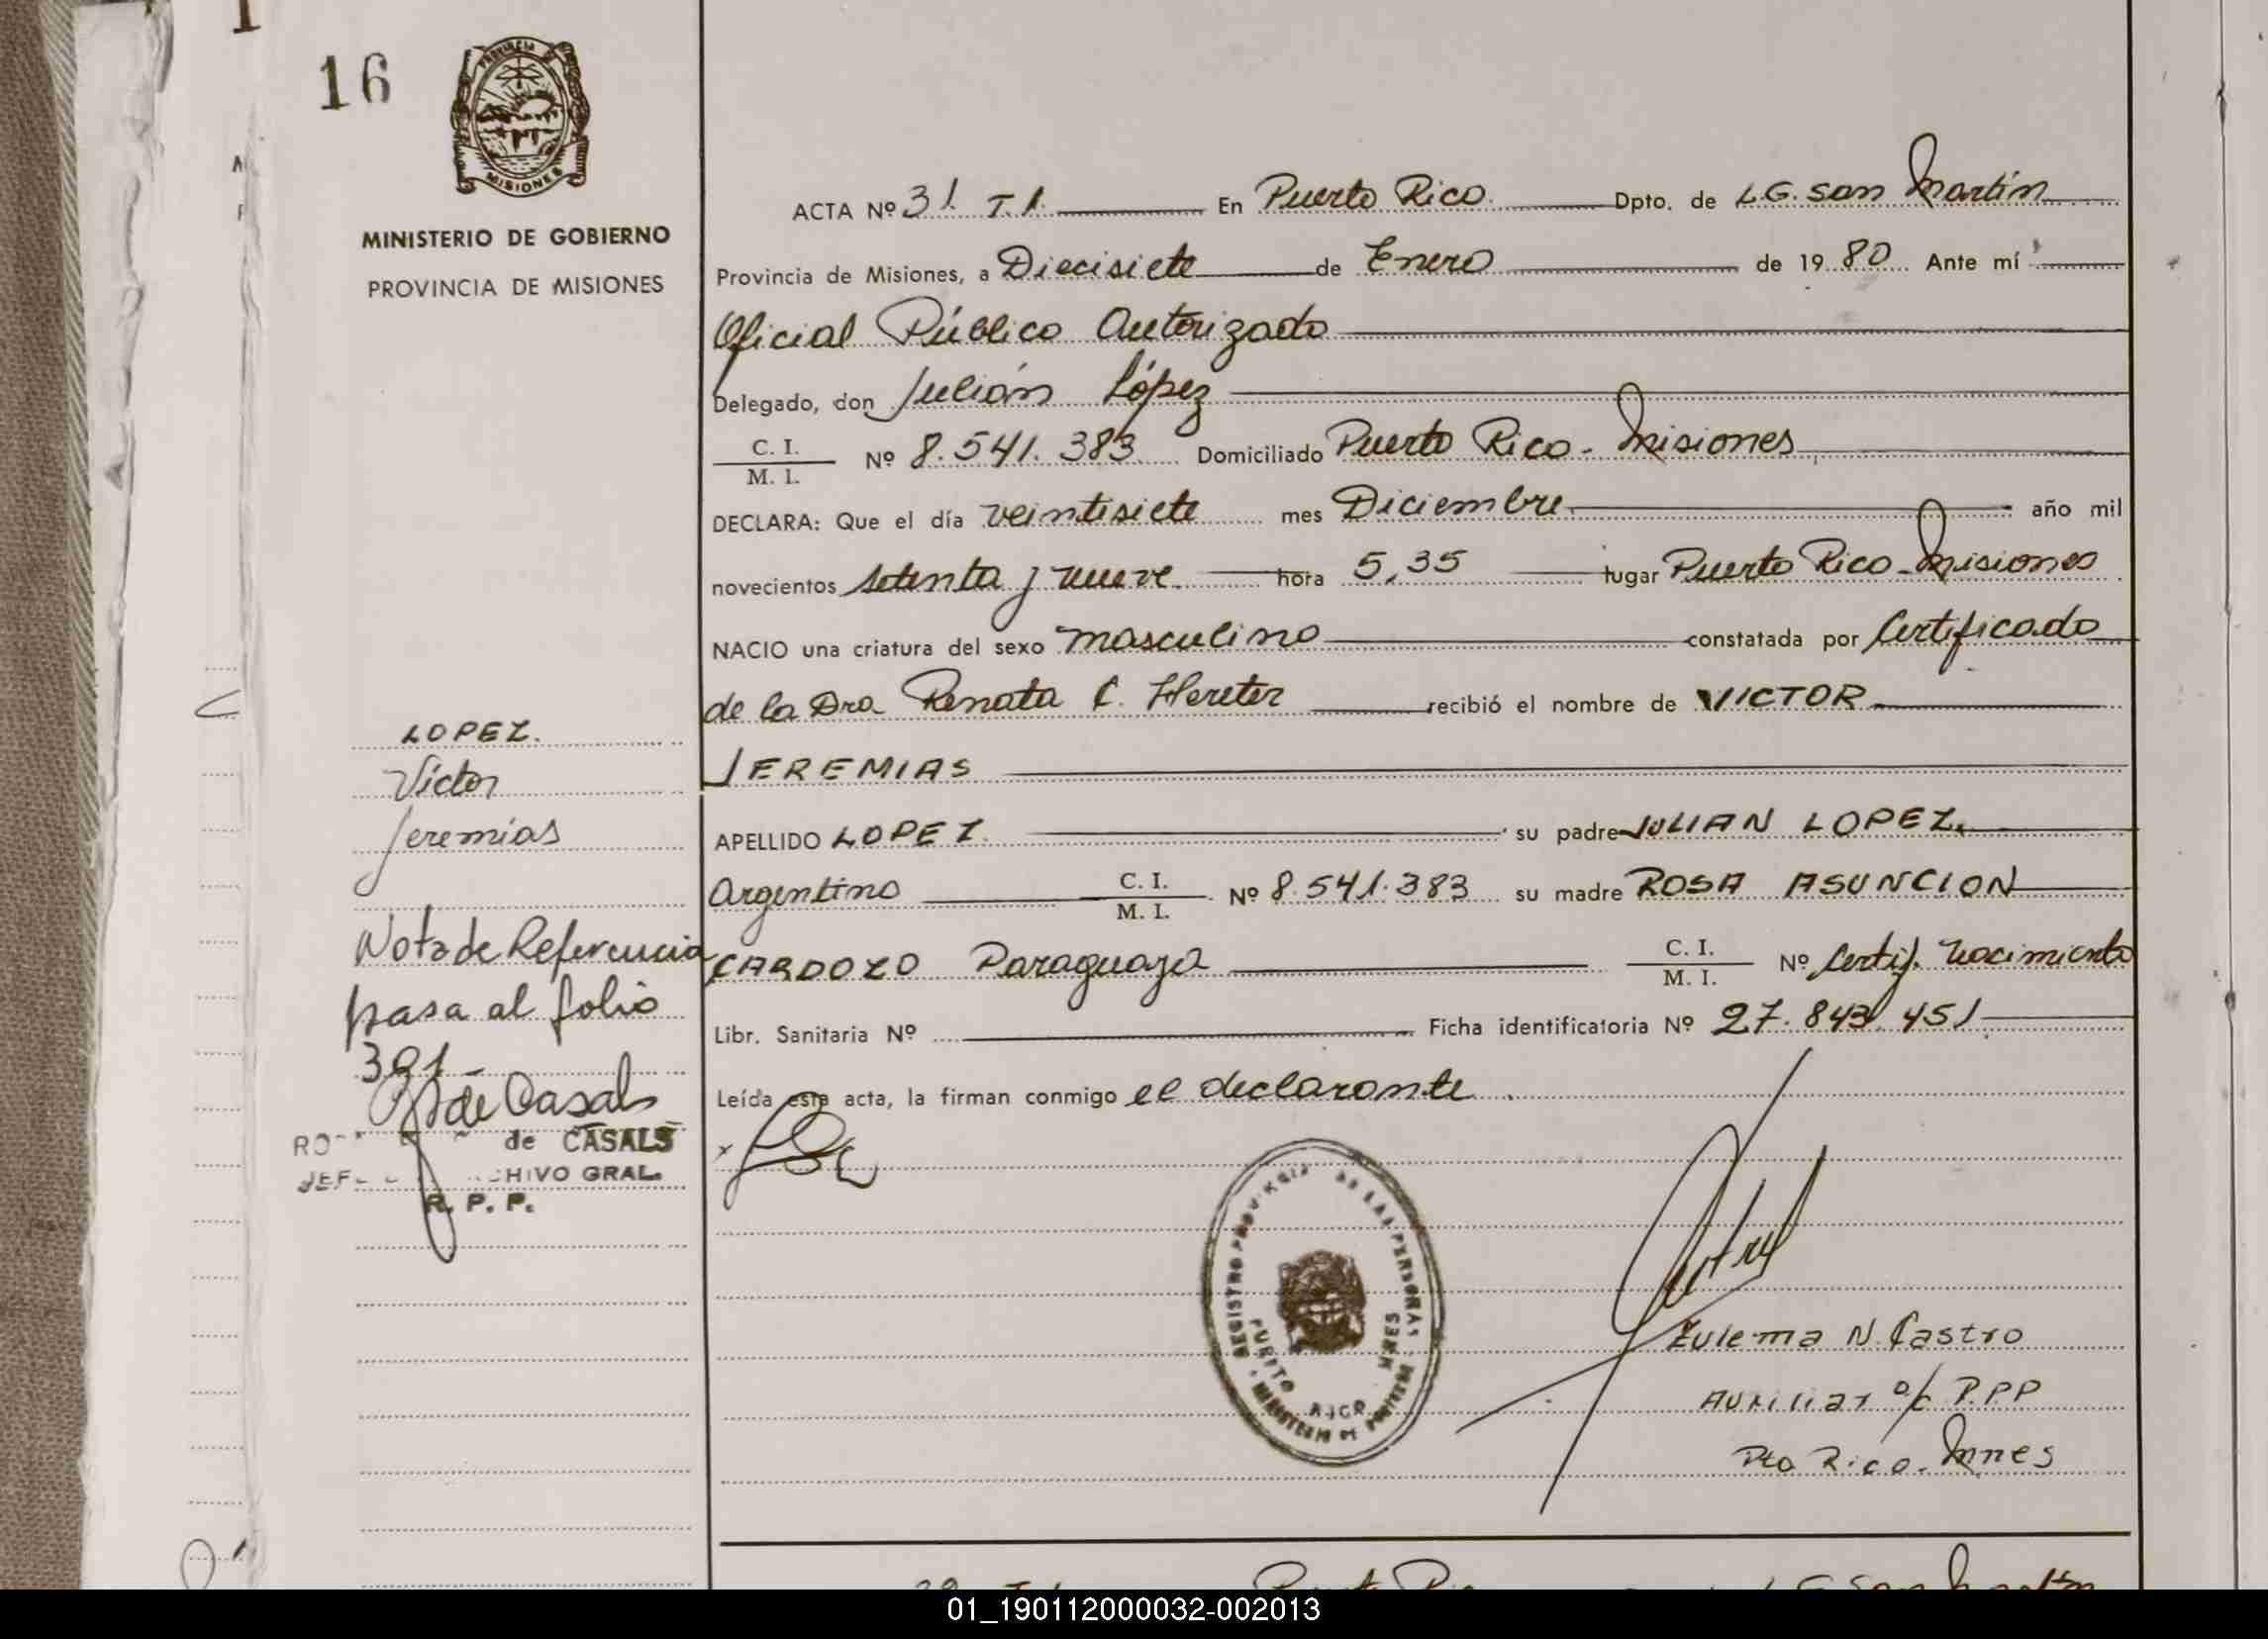 16
PROVINCIA
MISIONES
MINISTERIO DE GOBIERNO
PROVINCIA DE MISIONES
ACTA Nº 31. T.1. En Puerto Rico. Dpto. de L.G. San Martín
Provincia de Misiones, a Diecisiete de Enero de 1980 Ante mí
Oficial Público Autorizado
Delegado, don Julián López
C. I.
M. I.
Nº 8.541.383 Domiciliado Puerto Rico - Misiones
DECLARA: Que el día veintisiete mes Diciembre año mil
novecientos setenta y nueve hora 5,35 lugar Puerto Rico - Misiones
NACIO una criatura del sexo masculino constatada por Certificado
de la Dra Renata C. Hereter recibió el nombre de VICTOR
JEREMIAS
APELLIDO LOPEZ su padre JULIAN LOPEZ.
Argentino C. I. M. I. Nº 8.541.383 su madre ROSA ASUNCION
CARDOZO Paraguaya C. I. M. I. Nº Certif. Nacimiento
Libr. Sanitaria Nº Ficha identificatoria Nº 27.843.451
Leída esta acta, la firman conmigo el declarante
LOPEZ.
Víctor
Jeremias
Nota de Referencia
pasa al folio
391-
de Casals
de CASALS
ARCHIVO GRAL.
R. P. P.
REGISTRO PROVINCIAL DE LAS PERSONAS
PUERTO RICO
Zulema N. Castro
Auxiliar o/c R.P.P
Pto Rico. Mnes
Puerto Ri
L G San Martín
01_190112000032-002013